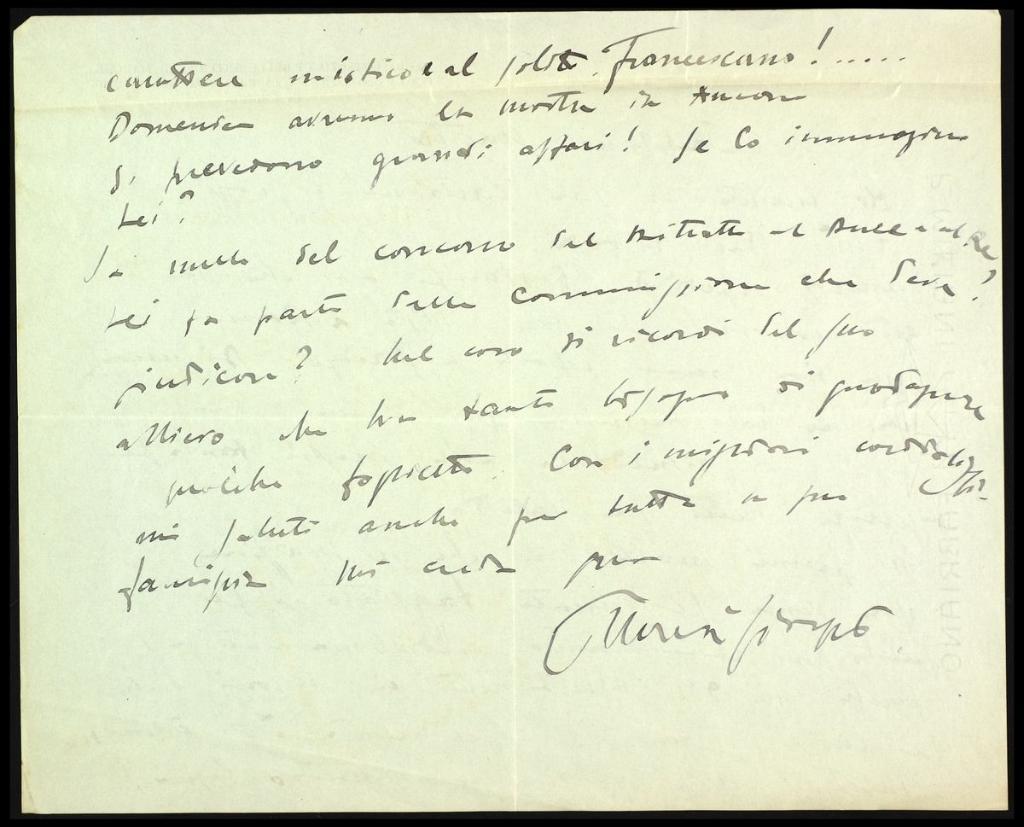 carattere mistico e al solito francescano!.....
Domenica avremo la mostra in Ancona
Si prevedono grandi affari! Se lo immagina
Lei?
Sa nulla del concorso del ritratto al Duce e al Re?
Lei fa parte della commissione che deve
giudicare? Nel caso si ricordi del suo
allievo che ha tanto bisogno di guadagnare
qualche soldietto. Con i migliori cordialissi-
mi saluti anche per tutta la sua
famiglia mi creda suo